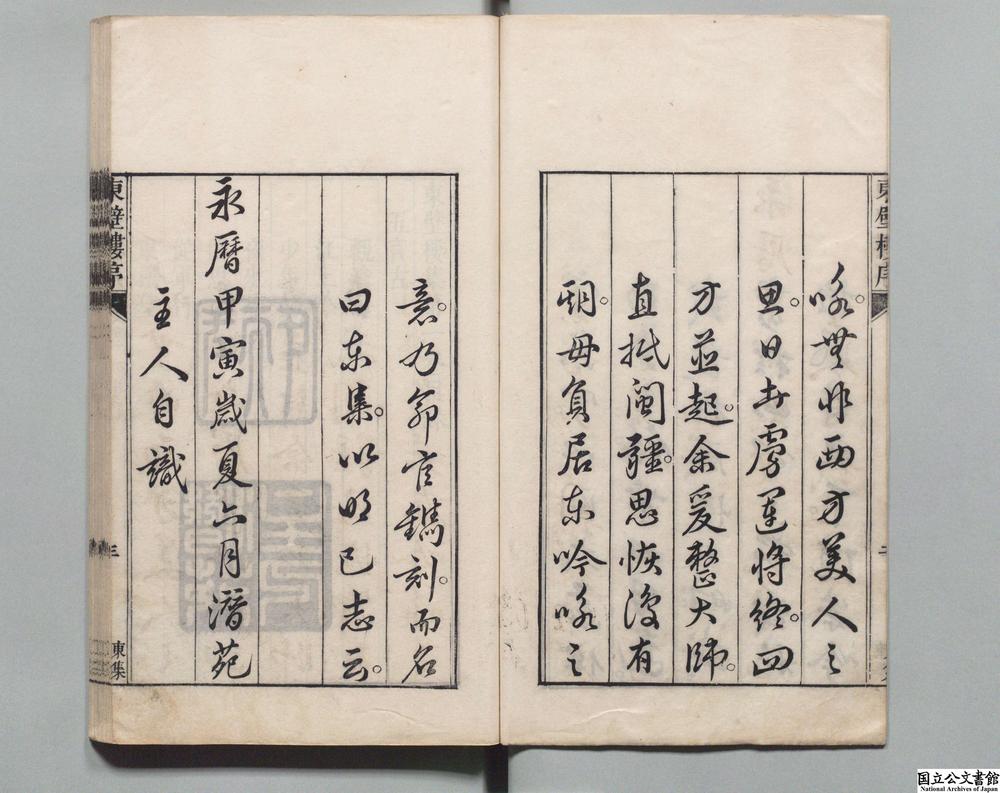 東壁樓序
咏。無非西方美人之
思。日者虜運將終。四
方並起。余爰整大師。
直抵閩疆。思恢復有
期。毋負居東吟咏之
意。乃命官鐫刻。而名
曰東集。以明己志云。
永曆甲寅歲夏六月潛苑
主人自識
東壁樓序
三
東集
国立公文書館
National Archives of Japan